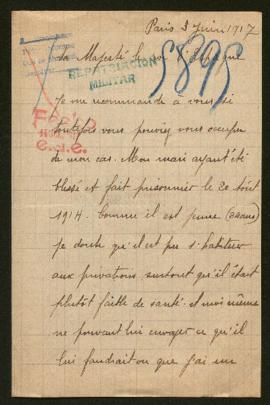 Paris 3 Juin 1917
Sa Majesté le roi d'Espagne
5895
REPATRIACION
MILITAR
Je me recommande à vous si
toutefois vous pouviez vous occuper
de mon cas. Mon mari ayant été
blessé et fait prisonnier le 20 Août
1914. Comme il est jeune
je doute qu'il est pu s'habituer
aux privations surtout qu'il était
plutôt faible de santé et moi même
ne pouvant lui envoyer ce qu'il
lui faudrait vu que j'ai un